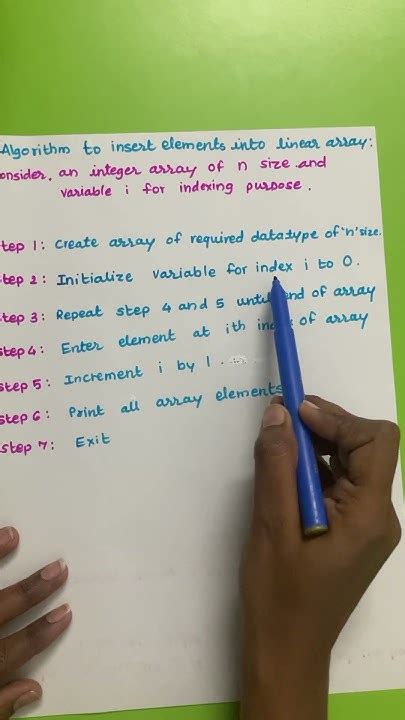 Algorithm to insert elements into linear array:
onsider, an integer array of n size and
variable i for indexing purpose.
tep 1: Create array of required datatype of 'n' size.
tep 2: Initialize variable for index i to 0.
tep 3: Repeat step 4 and 5 until end of array
step 4: Enter element at ith index of array
step 5: Increment i by 1.
step 6: Print all array elements
step 7: Exit